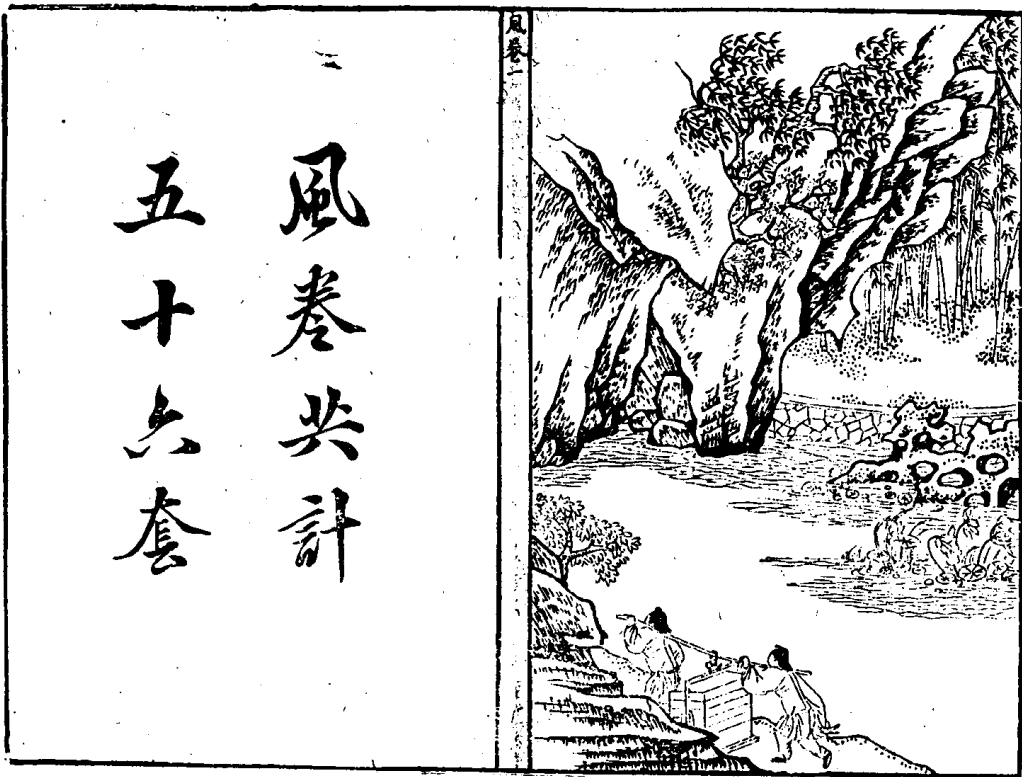 風卷二
風卷共計
五十六套